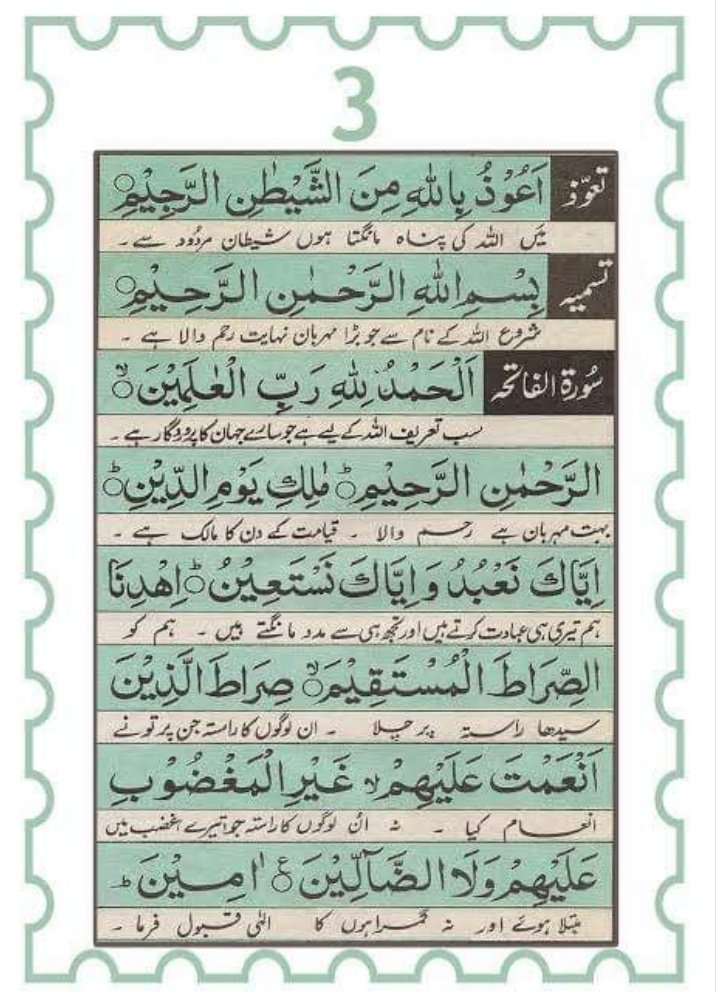 3
تعوّذ اَعُوْذُ بِاللّٰهِ مِنَ الشَّيْطٰنِ الرَّجِيْمِ○
میں اللہ کی پناہ مانگتا ہوں شیطان مردُود سے ۔
تسمیہ بِسْمِ اللّٰهِ الرَّحْمٰنِ الرَّحِيْمِ○
شروع اللہ کے نام سے جو بڑا مہربان نہایت رحم والا ہے ۔
سُورۃ الفاتحہ اَلْحَمْدُ لِلّٰهِ رَبِّ الْعٰلَمِيْنَ○ۙ
سب تعریف اللہ کے لیے ہے جو سارے جہان کا پروردگار ہے ۔
الرَّحْمٰنِ الرَّحِيْمِ○ۙ مٰلِكِ يَوْمِ الدِّيْنِ○ؕ
بہت مہربان ہے رحم والا ۔ قیامت کے دن کا مالک ہے ۔
اِيَّاكَ نَعْبُدُ وَ اِيَّاكَ نَسْتَعِيْنُ○ؕ اِهْدِنَا
ہم تیری ہی عبادت کرتے ہیں اور تجھ ہی سے مدد مانگتے ہیں ۔ ہم کو
الصِّرَاطَ الْمُسْتَقِيْمَ○ۙ صِرَاطَ الَّذِيْنَ
سیدھا راستہ پر چلا ۔ ان لوگوں کا راستہ جن پر تو نے
اَنْعَمْتَ عَلَيْهِمْ○ۙ غَيْرِ الْمَغْضُوْبِ
انعام کیا ۔ نہ اُن لوگوں کا راستہ جو تیرے غضب میں
عَلَيْهِمْ وَلَا الضَّآلِّيْنَ○ۧ اٰمِيْنَ ؕ
مبتلا ہوئے اور نہ گمراہوں کا الٰہی قبول فرما ۔